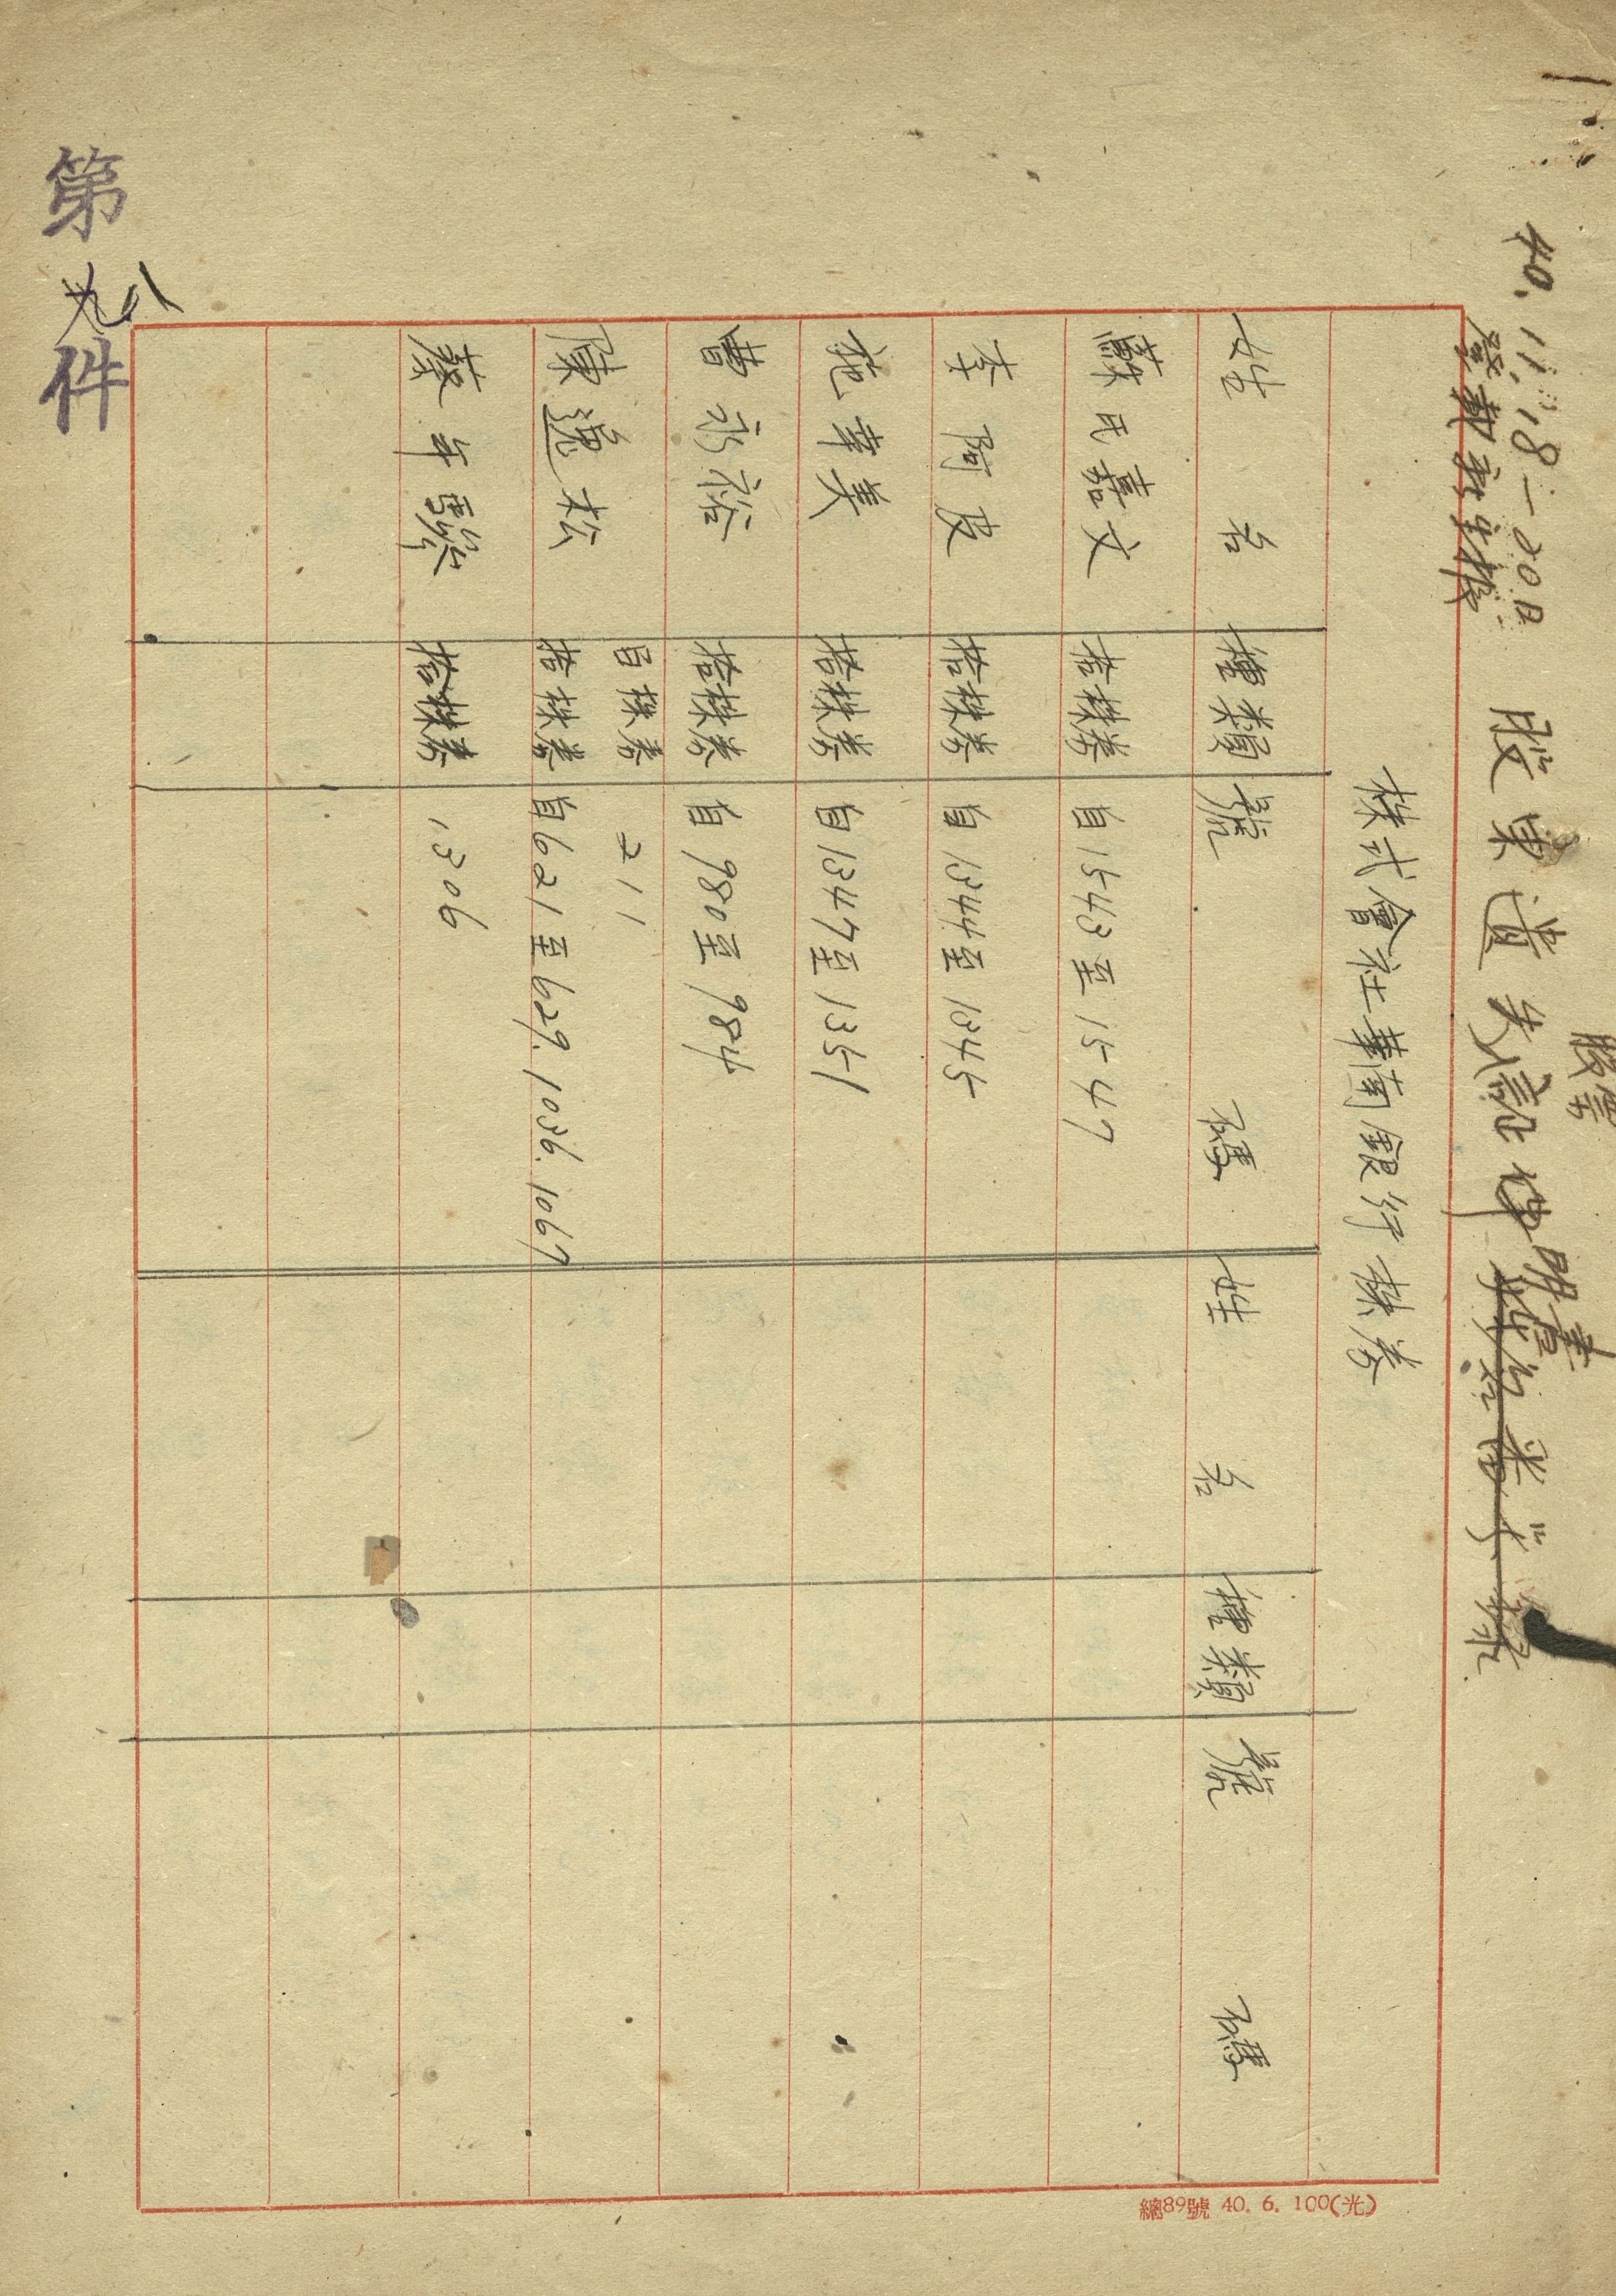 40.11.18—20日
登載新生報
股票
股東遺失證件聲明書
株式會社華南銀行株券
姓名 種類 號碼 姓名 種類 號碼
蘇氏嘉文 拾株券 自1543至1547
李阿良 拾株券 自1344至1345
施幸美 拾株券 自1347至1351
曹永裕 拾株券 自980至984
陳逸松 百株券 211
拾株券 自621至629.1036.1067
蔡年 拾株券 1306
第八件
總89號 40.6.100(光)